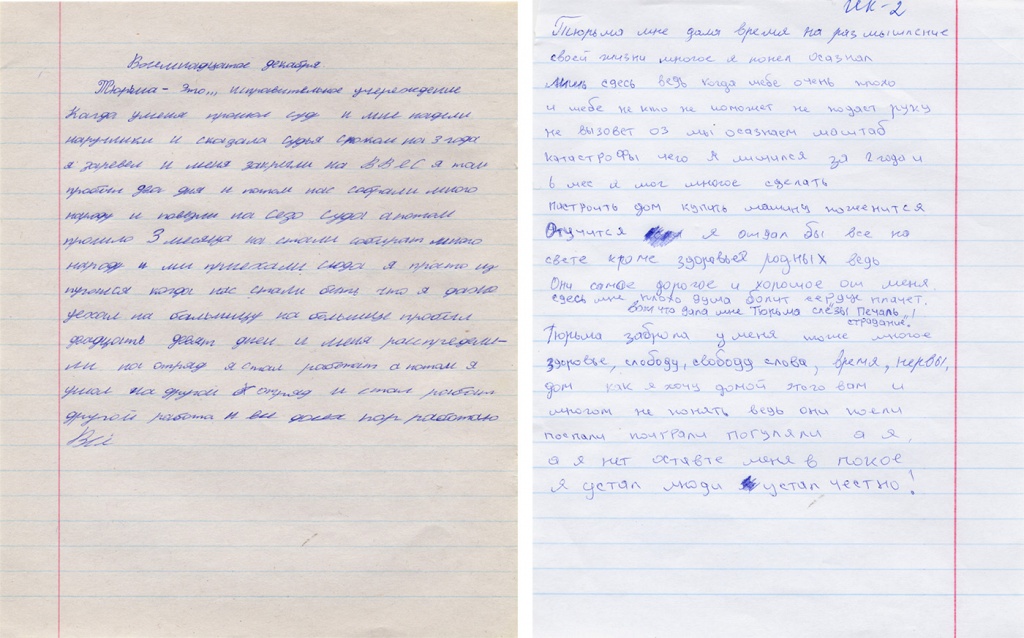 Восемнадцатое декабря.
Тюрьма - это... исправительное учереждение
Когда уменя прошол суд и мне надели
наручники и сказала судья сроком на 3 года
я заревел и меня закрыли на ВВС я там
пробыл два дня и потом нас собрали много
народу и повезли на Сезо суда а потом
прошло 3 месяца на стали собират много
народу и ми приехали сюда я просто
когда нас стали бить что я
уехал на бальницу на больнице пробыл
двадцать девят дней и меня распределе-
ли на отряд я стал работат а потом я
ушол на другой отряд и стал работат
другой работа и вы до сех пор работаю
Всё
ИК-2
Тюрьма мне дала время на размышление
своей жизни многое я понел осазнал
лишь сдесь ведь когда тебе очень плохо
и тебе не кто не поможет не подает руку
не вызовет 03 мы осазнаем маштаб
катастрофы чего я лишился за 2 года и
6 мес я мог многое сделать
построить дом купить машину поженится
Отучится я отдал бы все на
свете кроме здоровья родных ведь
Они самое дорогое и хорошое от меня.
сдесь мне плохо душа болит сердце плачет.
вот что дала мне Тюрьма слёзы печаль,!
страдание.
Тюрьма забрала у меня тоже многое
здоровье, слободу, свободу слова, время, нервы,
дом как я хочу домой этого вам и
многом не понять ведь они поели
поспали поиграли погуляли а я.
а я нет оставте меня в покое
я устал люди устал честно!